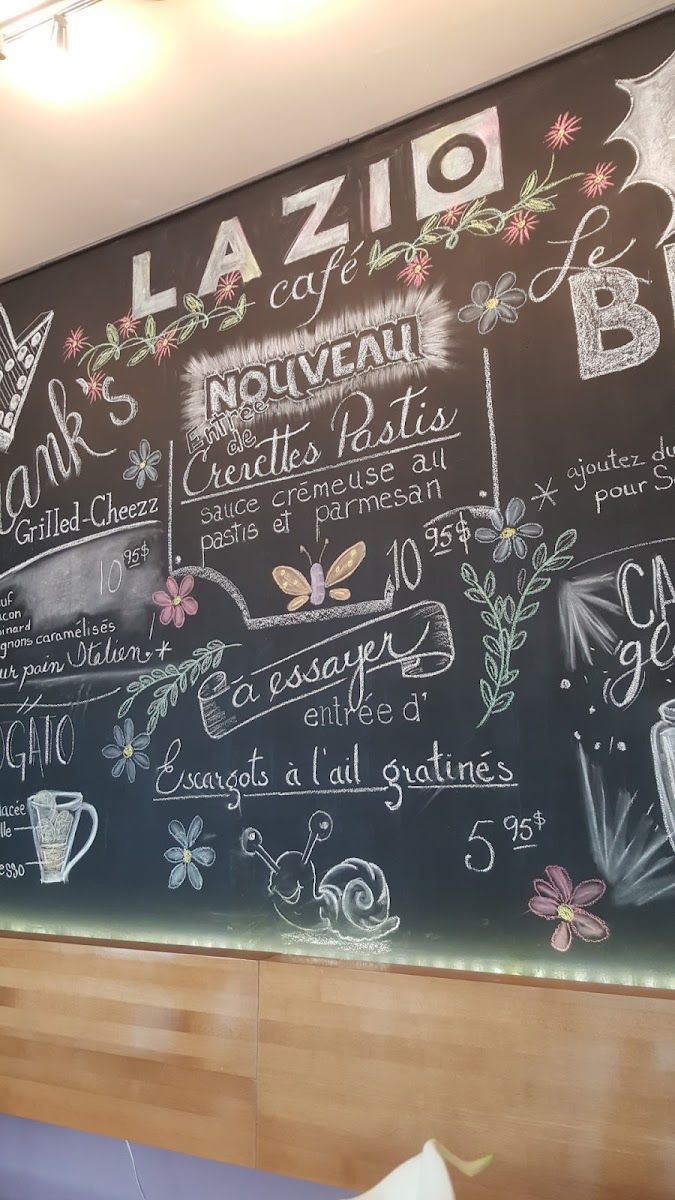 LAZIO
café
NOUVEAU
Entrée
de
Crevettes Pastis
sauce crémeuse au
pastis et parmesan
10 95$
à essayer
entrée d'
Escargots à l'ail gratinés
5 95$
ank's
Grilled-Cheezz
10 95$
uf
acon
inard
gnons caramélisés
ur pain Italien *
OGATO
lacée
lle
esso
Le
B
* ajoutez du
pour S
CA
gl